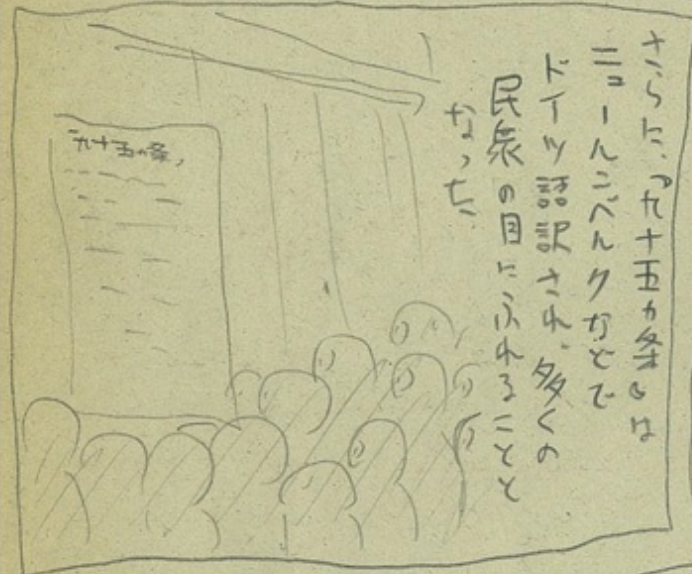 さらに、「九十五カ条」は
ニュールンベルクなどで
ドイツ語訳され、多くの
民衆の目にふれることと
なった
「九十五カ条」